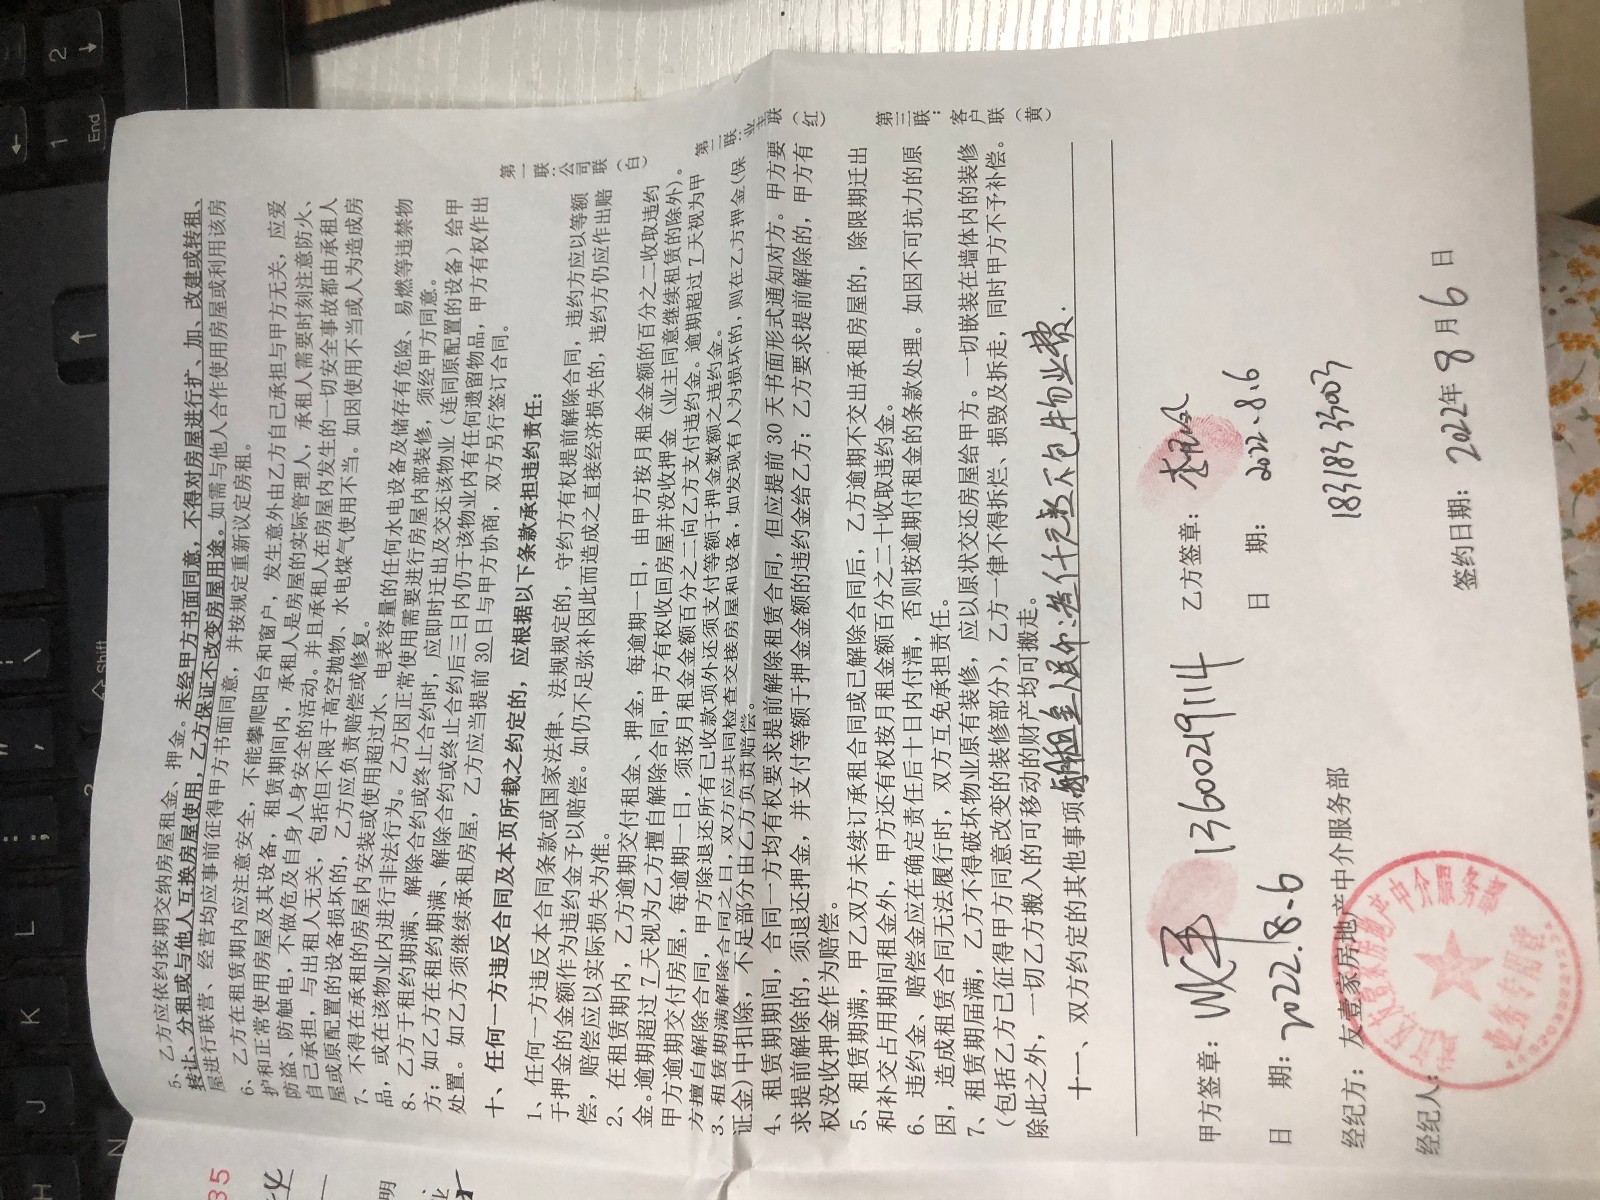 5、乙方应依约按期交纳房屋租金、押金。未经甲方书面同意，不得对房屋进行扩、加、改建或转租、
转让、分租或与他人互换房屋使用，乙方保证不改变房屋用途。如需与他人合作使用房屋或利用该房
屋进行联营、经营均应事前征得甲方书面同意，并按规定重新议定房租。
6、乙方在租赁期内应注意安全，不能攀爬阳台和窗户，发生意外由乙方自己承担与甲方无关，应爱
护和正常使用房屋及其设备，租赁期间内，承租人是房屋的实际管理人，承租人需要时刻注意防火、
防盗、防触电，不做危及自身人身安全的活动。并且承租人在房屋内发生的一切安全事故都由承租人
自己承担，与出租人无关，包括但不限于高空抛物、水电煤气使用不当。如因使用不当或人为造成房
屋或原配置的设备损坏的，乙方应负责赔偿或修复。
7、不得在承租的房屋内安装或使用超过水、电表容量的任何水电设备及储存有危险、易燃等违禁物
品，或在该物业内进行非法行为。乙方因正常使用需要进行房屋内部装修，须经甲方同意。
8、乙方于租约期满、解除合约或终止合约时，应即时迁出及交还该物业（连同原配置的设备）给甲
方；如乙方在租约期满、解除合约或终止合约后三日内仍于该物业内有任何遗留物品，甲方有权作出
处置。如乙方须继续承租房屋，乙方应当提前30日与甲方协商，双方另行签订合同。
十、任何一方违反合同及本页所载之约定的，应根据以下条款承担违约责任：
1、任何一方违反本合同条款或国家法律、法规规定的，守约方有权提前解除合同，违约方应以等额
于押金的金额作为违约金予以赔偿。如仍不足弥补因此而造成之直接经济损失的，违约方仍应作出赔
偿，赔偿应以实际损失为准。
2、在租赁期内，乙方逾期交付租金、押金，每逾期一日，由甲方按月租金金额的百分之二收取违约
金。逾期超过7天视为乙方擅自解除合同，甲方有权收回房屋并没收押金（业主同意继续租赁的除外）。
甲方逾期交付房屋，每逾期一日，须按月租金金额百分之二向乙方支付违约金。逾期超过7天视为甲
方擅自解除合同，甲方除退还所有已收款项外还须支付等额于押金数额之违约金。
3、租赁期满解除合同之日，双方应共同检查交接房屋和设备，如发现有人为损坏的，则在乙方押金（保
证金）中扣除，不足部分由乙方负责赔偿。
4、租赁期期间，合同一方均有权要求提前解除租赁合同，但应提前30天书面形式通知对方。甲方要
求提前解除的，须退还押金，并支付等额于押金金额的违约金给乙方；乙方要求提前解除的，甲方有
权没收押金作为赔偿。
5、租赁期满，甲乙双方未续订承租合同或已解除合同后，乙方逾期不交出承租房屋的，除限期迁出
和补交占用期间租金外，甲方还有权按月租金额百分之二十收取违约金。
6、违约金、赔偿金应在确定责任后十日内付清，否则按逾期付租金的条款处理。如因不可抗力的原
因，造成租赁合同无法履行时，双方互免承担责任。
7、租赁期届满，乙方不得破坏物业原有装修，应以原状交还房屋给甲方。一切嵌装在墙体内的装修
（包括乙方已征得甲方同意改变的装修部分），乙方一律不得拆烂、损毁及拆走，同时甲方不予补偿。
除此之外，一切乙方搬入的可移动的财产均可搬走。
十一、双方约定的其他事项
不包物业费.
第一联：公司联（白）
第二联：业主联（红）
第三联：客户联（黄）
甲方签章： 13600291114 乙方签章：
日 期：2022.8.6 日 期：2022.8.6
经纪方：友壹家房地产中介服务部 18318333003
经纪人： 签约日期：2022年8月6日
房地产中介服务部
业务专用章